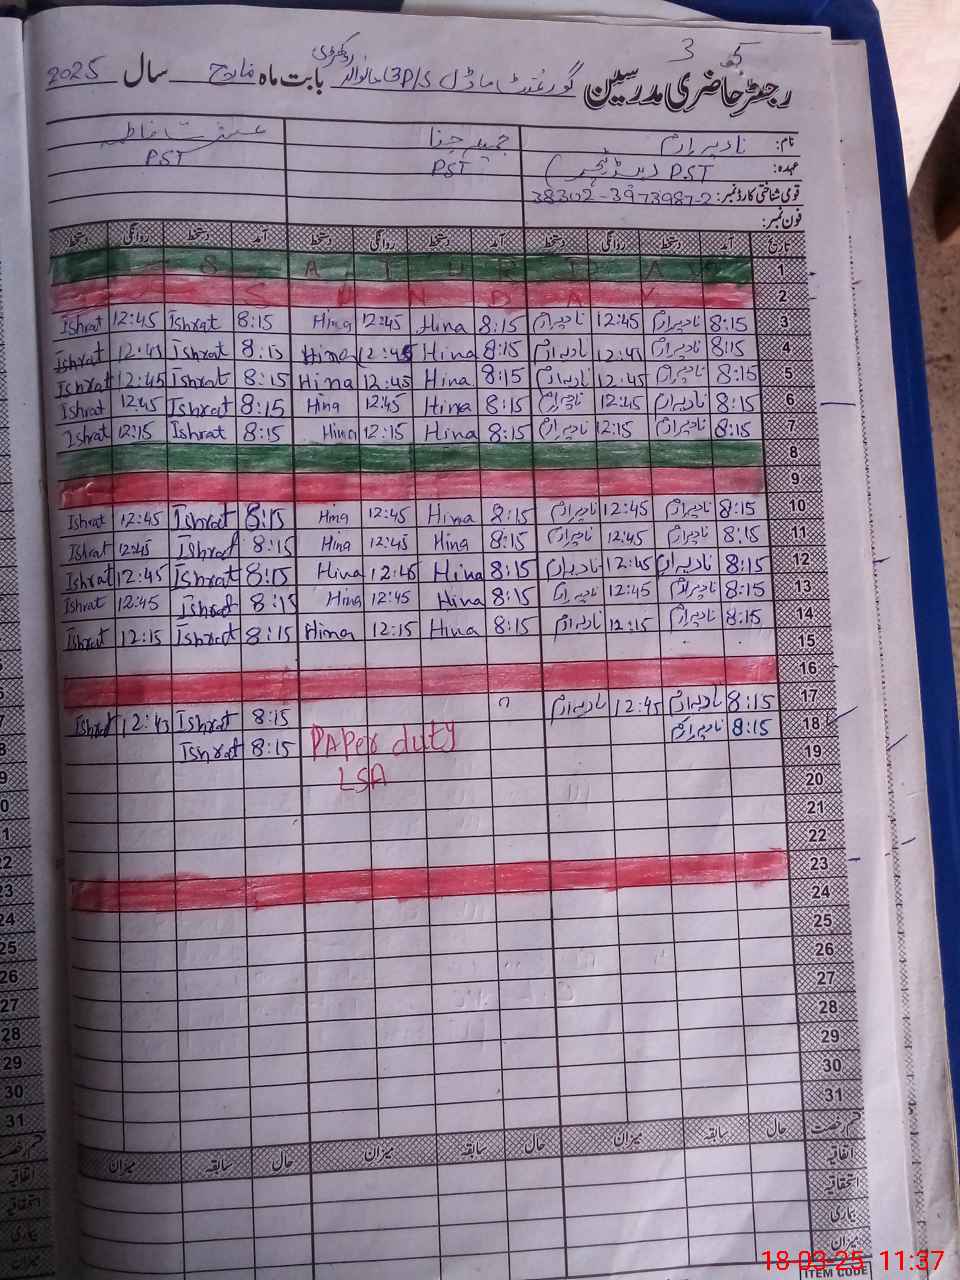 3 5
رجسٹر حاضری مدرسین گورنمنٹ ماڈل P/S بابت ماہ مارچ سال 2025
نام: نادیہ ارم
عہدہ: PST PST PST
قومی شناختی کارڈ نمبر: 38302-3973987-2
فون نمبر:
تاریخ آمد دستخط روانگی دستخط آمد دستخط روانگی دستخط آمد دستخط روانگی دستخط
1 S A T U R D A Y
2 S U N D A Y
3 8:15 نادیہ ارم 12:45 نادیہ ارم 8:15 Hina 12:45 Hina 8:15 Ishrat 12:45 Ishrat
4 8:15 نادیہ ارم 12:45 نادیہ ارم 8:15 Hina 12:45 Hina 8:15 Ishrat 12:45 Ishrat
5 8:15 نادیہ ارم 12:45 نادیہ ارم 8:15 Hina 12:45 Hina 8:15 Ishrat 12:45 Ishrat
6 8:15 نادیہ ارم 12:45 نادیہ ارم 8:15 Hina 12:45 Hina 8:15 Ishrat 12:45 Ishrat
7 8:15 نادیہ ارم 12:15 نادیہ ارم 8:15 Hina 12:15 Hina 8:15 Ishrat 12:15 Ishrat
8
9
10 8:15 نادیہ ارم 12:45 نادیہ ارم 8:15 Hina 12:45 Hina 8:15 Ishrat 12:45 Ishrat
11 8:15 نادیہ ارم 12:45 نادیہ ارم 8:15 Hina 12:45 Hina 8:15 Ishrat 12:45 Ishrat
12 8:15 نادیہ ارم 12:45 نادیہ ارم 8:15 Hina 12:45 Hina 8:15 Ishrat 12:45 Ishrat
13 8:15 نادیہ ارم 12:45 نادیہ ارم 8:15 Hina 12:45 Hina 8:15 Ishrat 12:45 Ishrat
14 8:15 نادیہ ارم 12:15 نادیہ ارم 8:15 Hina 12:15 Hina 8:15 Ishrat 12:15 Ishrat
15
16
17 8:15 نادیہ ارم 12:45 نادیہ ارم 8:15 Ishrat 12:43 Ishrat
18 8:15 نادیہ ارم PAPer duty 8:15 Ishrat
19 LSA
20
21
22
23
24
25
26
27
28
29
30
31
قسم رخصت حال سابقہ میزان حال سابقہ میزان حال سابقہ میزان
اتفاقیہ
استحقاقیہ
بیماری
میزان
ITEM CODE
18-03-25 11:37